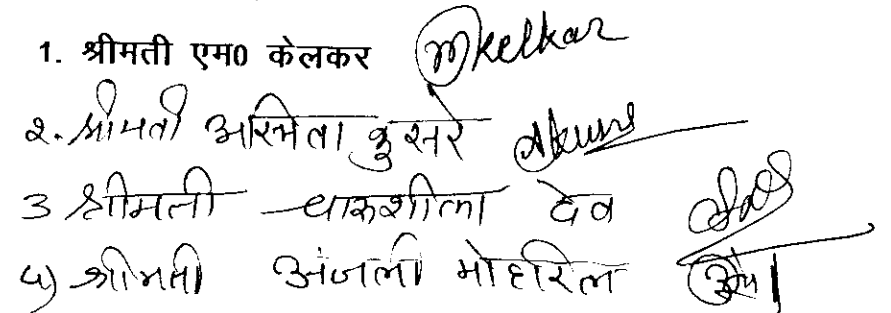 1. श्रीमती एम0 केलकर Mkelkar
२. श्रीमती अस्मिता कुसरे
3 श्रीमती चारूशीला देव
४) श्रीमती अंजली मोहरिल